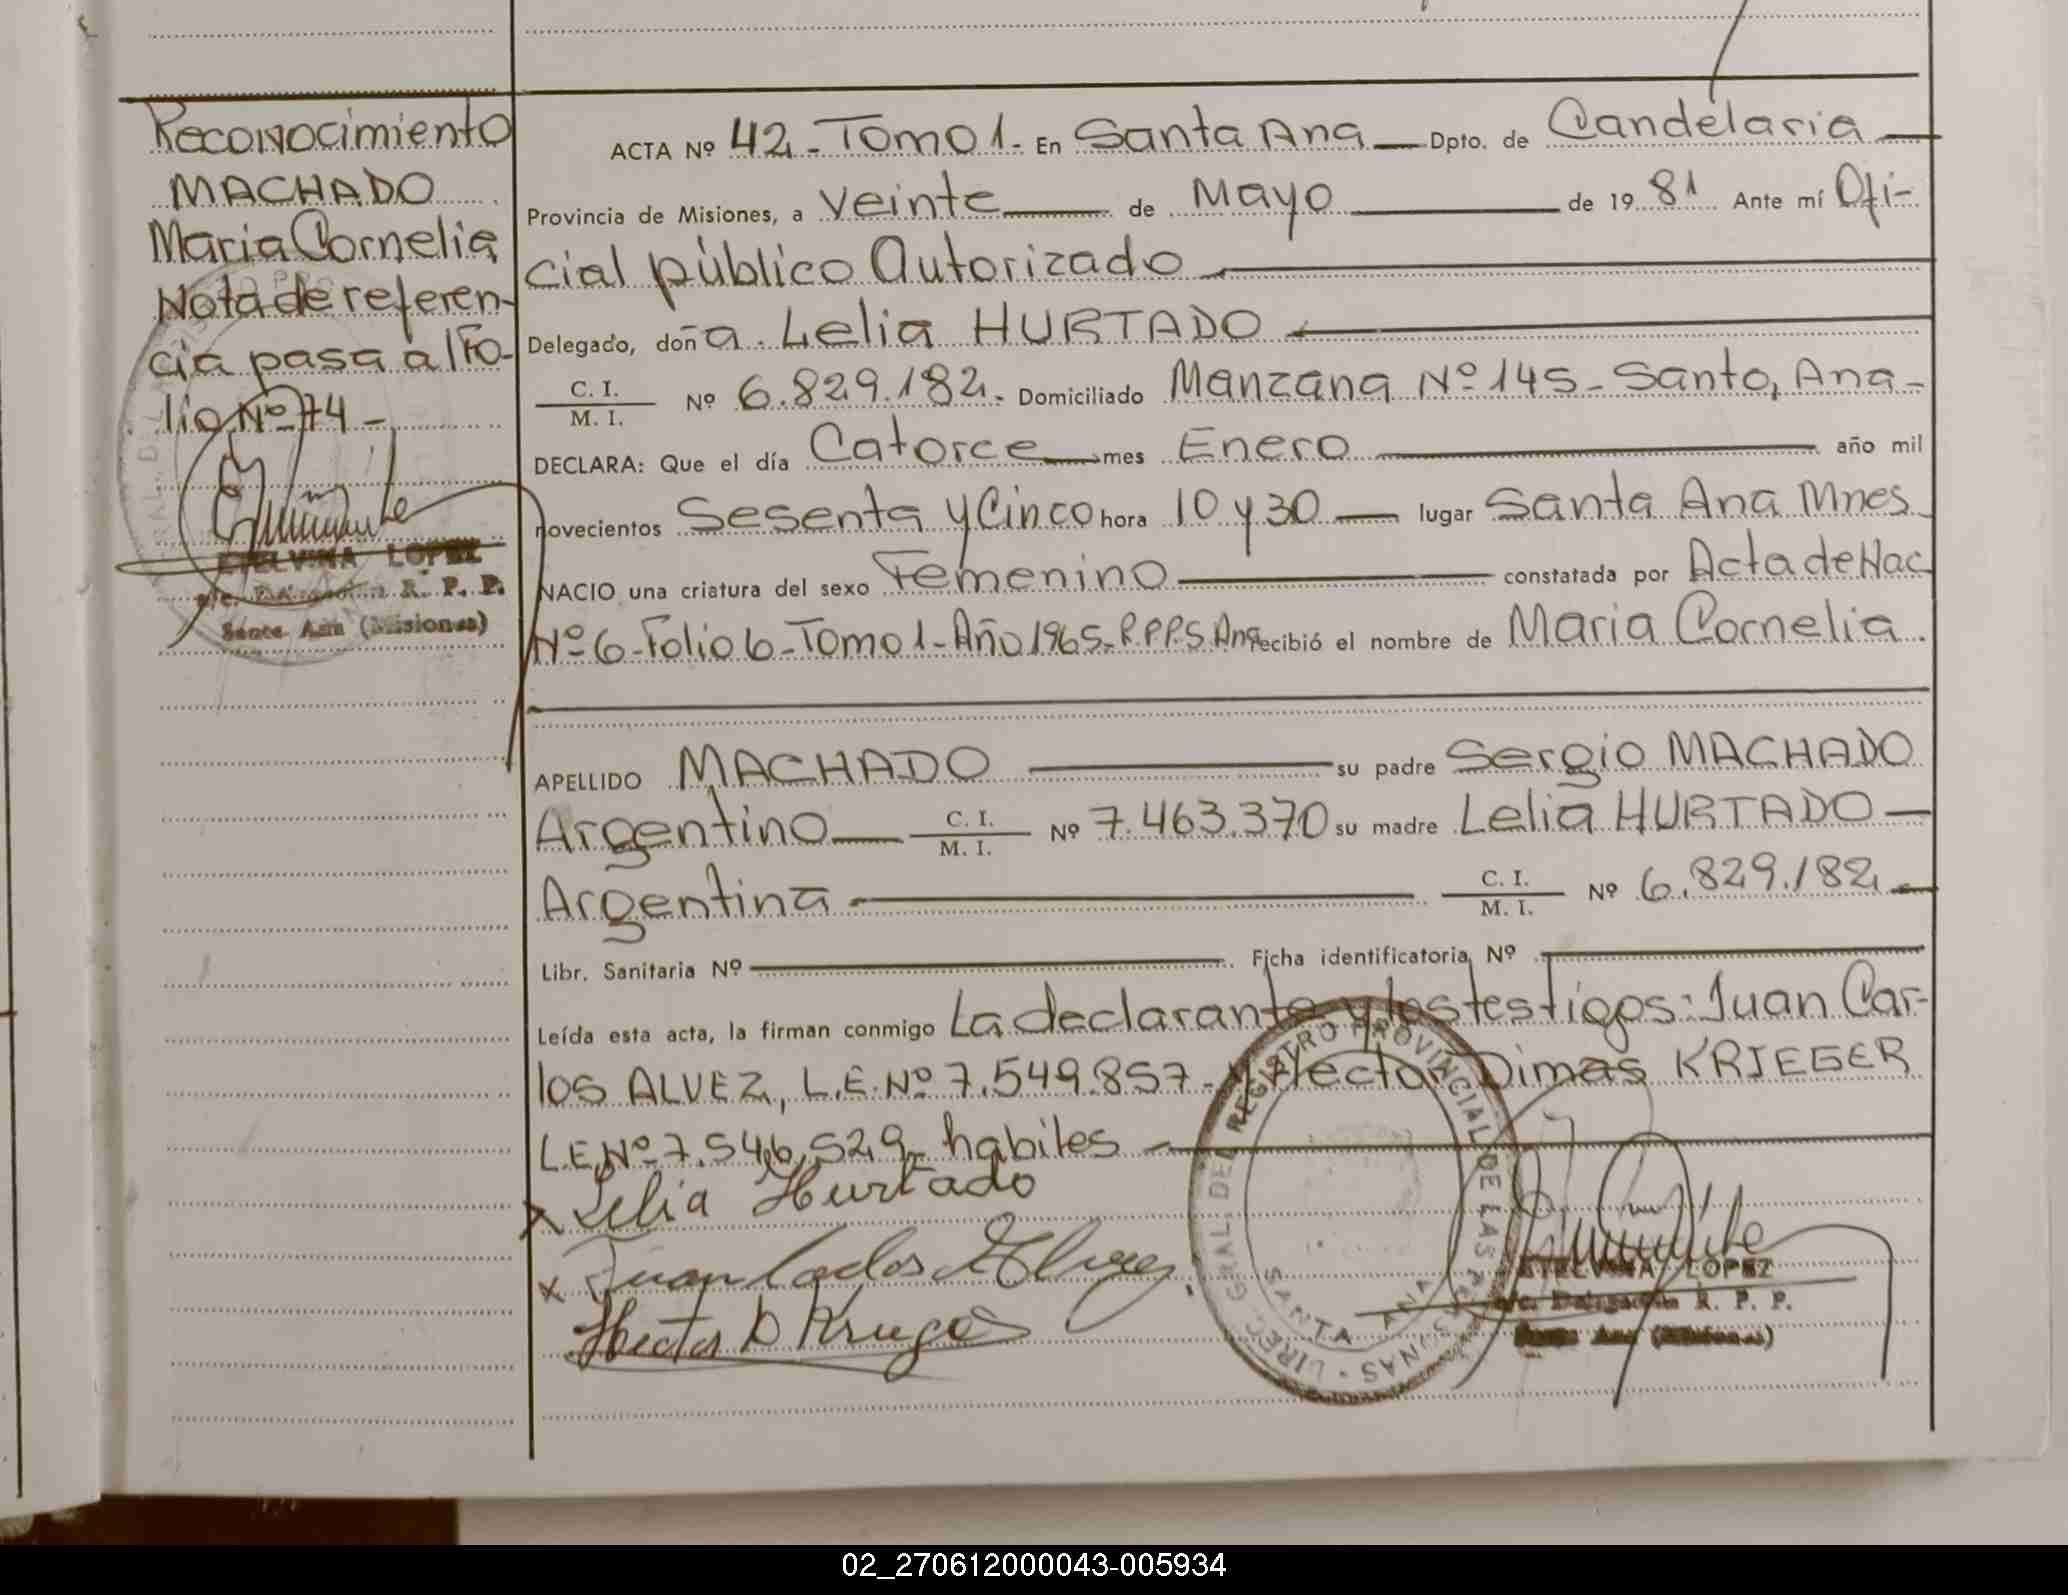 Reconocimiento
MACHADO
Maria Cornelia
Nota de referen-
cia pasa al Fo-
lio Nº 74 -
ETELVINA LOPEZ
R. P. P.
Santa Ana (Misiones)
ACTA Nº 42 - Tomo 1 - En Santa Ana Dpto. de Candelaria
Provincia de Misiones, a Veinte de Mayo de 1981 Ante mí Ofi-
cial público Autorizado
Delegado, doña. Lelia HURTADO
C. I. / M. I. Nº 6.829.182. Domiciliado Manzana Nº 145 - Santa, Ana -
DECLARA: Que el día Catorce mes Enero año mil
novecientos Sesenta y Cinco hora 10 y 30 lugar Santa Ana Mnes
NACIO una criatura del sexo Femenino constatada por Acta de Nac
Nº 6 - Folio 6 - Tomo 1 - Año 1965 - R.P.P.S. Ana recibió el nombre de Maria Cornelia.
APELLIDO MACHADO su padre Sergio MACHADO
Argentino C. I. / M. I. Nº 7.463.370 su madre Lelia HURTADO
Argentina C. I. / M. I. Nº 6.829.182
Libr. Sanitaria Nº Ficha identificatoria Nº
Leída esta acta, la firman conmigo La declarante y los testigos: Juan Car-
los ALVEZ, L.E. Nº 7.549.857 - y Hector Dimas KRIEGER
L.E. Nº 7.546.529 - habiles
x Lelia Hurtado
x Juan Carlos Alvez
Hector D Krieger
DIREC. GRAL. DEL REGISTRO PROVINCIAL DE LAS PERSONAS
SANTA ANA
ETELVINA LOPEZ
Delegación R. P. P.
Ana (Misiones)
02_270612000043-005934